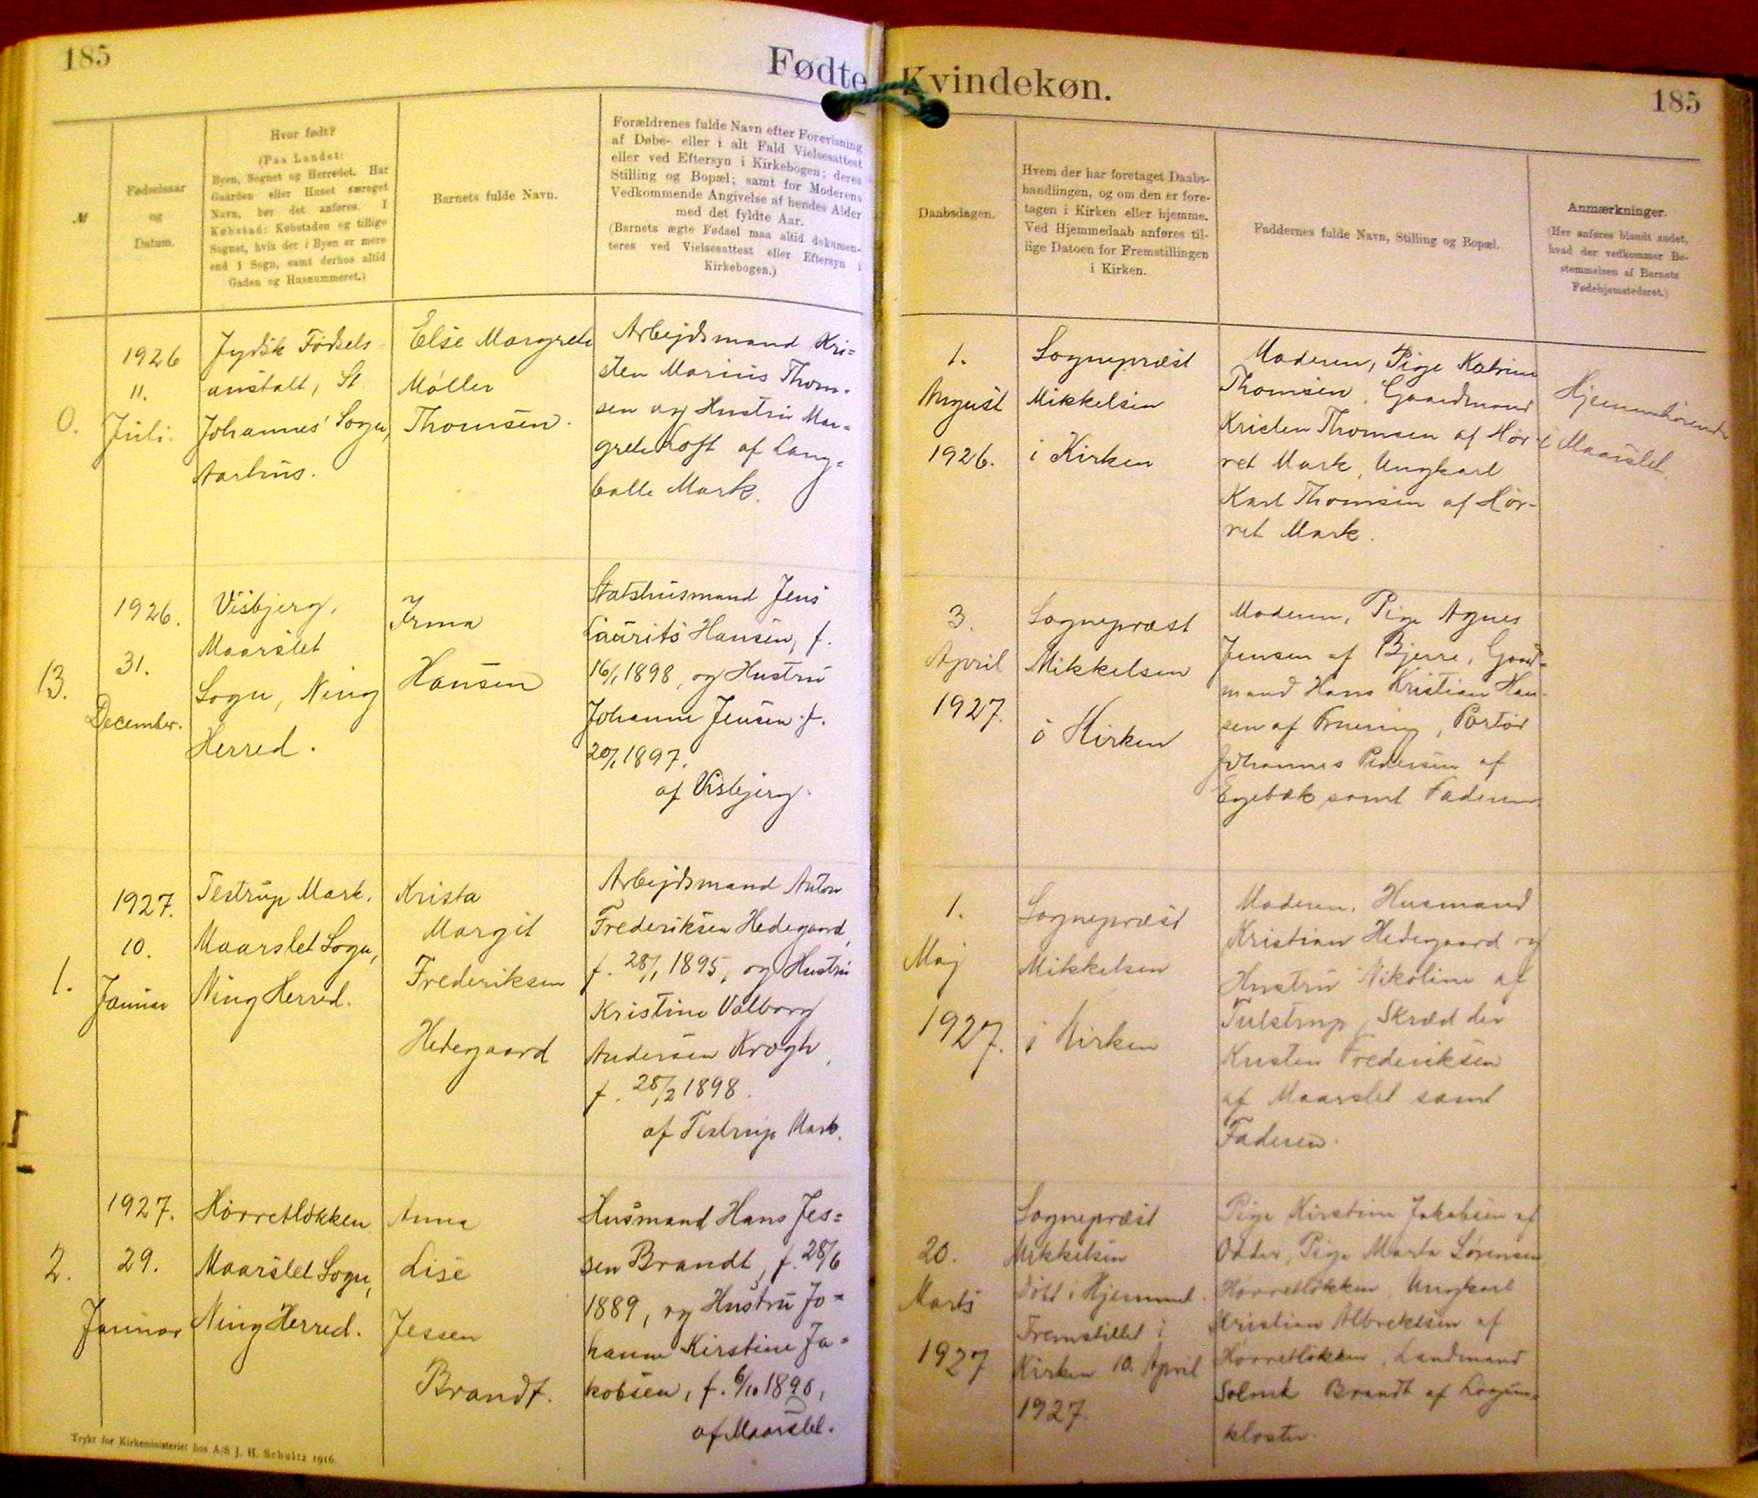 185
Fødte
Kvindekøn.
185
№
Fødselsaar
og
Datum.
Hvor født?
(Paa Landet:
Byen, Sognet og Herredet. Har
Gaarden eller Huset særeget
Navn, bør det anføres. I
Købstad: Købstaden og tillige
Sognet, hvis der i Byen er mere
end 1 Sogn, samt derhos altid
Gaden og Husnummeret.)
Barnets fulde Navn.
Forældrenes fulde Navn efter Forevisning
af Døbe- eller i alt Fald Vielsesattest
eller ved Eftersyn i Kirkebogen; deres
Stilling og Bopæl; samt for Moderens
Vedkommende Angivelse af hendes Alder
med det fyldte Aar.
(Barnets ægte Fødsel maa altid dokumen-
teres ved Vielsesattest eller Eftersyn i
Kirkebogen.)
Daabsdagen.
Hvem der har foretaget Daabs-
handlingen, og om den er fore-
tagen i Kirken eller hjemme.
Ved Hjemmedaab anføres til-
lige Datoen for Fremstillingen
i Kirken.
Faddernes fulde Navn, Stilling og Bopæl.
Anmærkninger.
(Her anføres blandt andet,
hvad der vedkommer Be-
stemmelsen af Barnets
Fødehjemstedsret.)
0.
1926
11.
Juli.
Jydsk Fødsels-
anstalt, St
Johannes' Sogn,
Aarhus.
Else Margrete
Møller
Thomsen.
Arbejdsmand Kri=
sten Marius Thom-
sen og Hustru Mar=
grete Loft af Lang=
balle Mark.
1.
August
1926.
Sognepræst
Mikkelsen
i Kirken
Moderen, Pige Katrine
Thomsen, Gaardmand
Kristen Thomsen af Hør-
ret Mark, Ungkarl
Karl Thomsen af Hør-
ret Mark.
Hjemmehørende
i Maarslet.
13.
1926.
31.
December.
Visbjerg,
Maarslet
Sogn, Ning
Herred.
Irma
Hansen
Statshusmand Jens
Laurits Hansen, f.
16/1 1898, og Hustru
Johanne Jensen f.
20/1 1897.
af Visbjerg.
3.
April
1927.
Sognepræst
Mikkelsen
i Kirken
Moderen, Pige Agnes
Jensen af Bjerre, Gaard=
mand Hans Kristian Han-
sen af Fruering, Portør
Johannes Pedersen af
Egebæk samt Faderen.
1.
1927.
10.
Januar
Testrup Mark,
Maarslet Sogn,
Ning Herred.
Krista
Margit
Frederiksen
Hedegaard
Arbejdsmand Anton
Frederiksen Hedegaard,
f. 28/1 1895, og Hustru
Kristine Valborg
Andersen Krogh,
f. 25/2 1898.
af Testrup Mark.
1.
Maj
1927.
Sognepræst
Mikkelsen
i Kirken
Moderen, Husmand
Kristian Hedegaard og
Hustru Nikoline af
Tulstrup, Skrædder
Kristen Frederiksen
af Maarslet samt
Faderen.
2.
1927.
29.
Januar
Hørretløkken
Maarslet Sogn,
Ning Herred.
Anna
Lise
Jessen
Brandt.
Husmand Hans Jes=
sen Brandt, f. 28/6
1889, og Hustru Jo=
hanne Kirstine Ja=
kobsen, f. 6/10 1890,
af Maarslet.
20.
Marts
1927
Sognepræst
Mikkelsen
døbt i Hjemmet.
Fremstillet i
Kirken 10. April
1927.
Pige Kirstine Jakobsen af
Odder, Pige Marta Sørensen
Hørretløkken, Ungkarl
Kristian Albrektsen af
Hørretløkken, Landmand
Brandt af Løgum=
kloster.
Trykt for Kirkeministeriet hos A/S J. H. Schultz 1916.